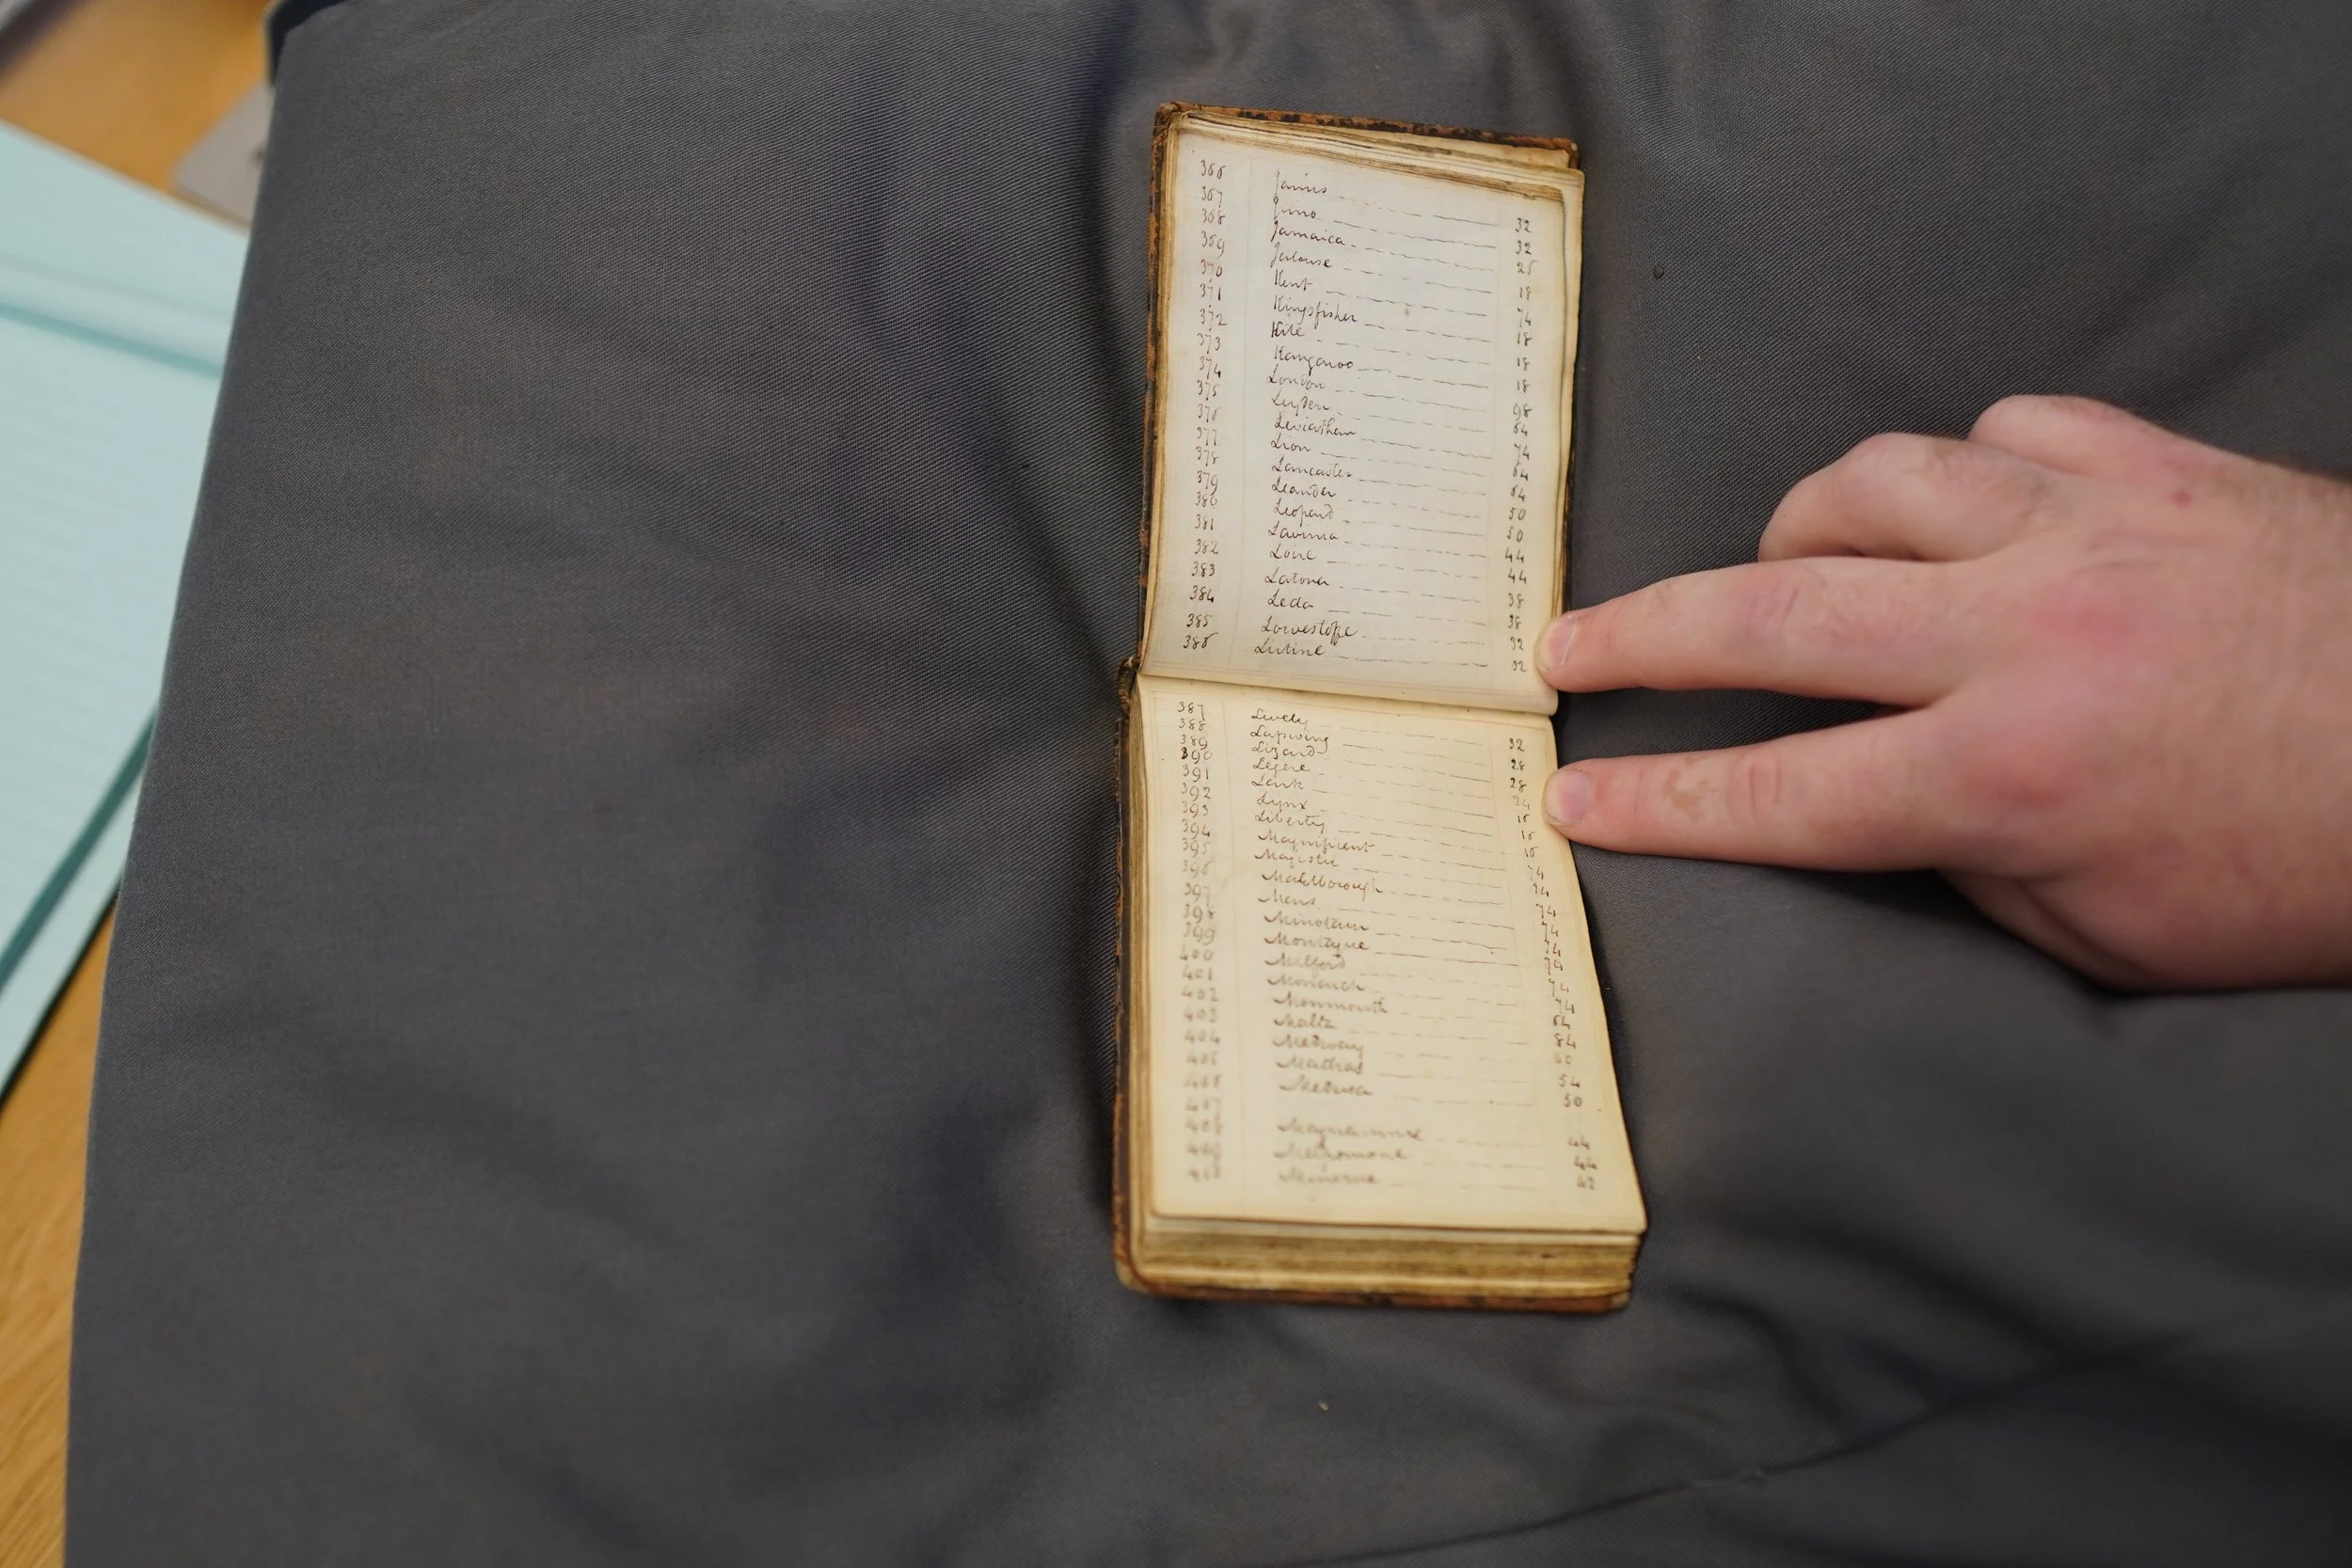 366 Janus 32
367 Juno 32
368 Jamaica 26
369 Jalouse 18
370 Kent 74
371 Kingsfisher 18
372 Kite 18
373 Kangaroo 18
374 London 98
375 Leyden 64
376 Leviathan 74
377 Lion 64
378 Lancaster 64
379 Leander 50
380 Leopard 50
381 Lavinia 44
382 Loire 44
383 Latona 38
384 Leda 38
385 Lowestoffe 32
386 Lutine 32
387 Lively 32
388 Lapwing 28
389 Lizard 28
390 Legere 24
391 Lark 16
392 Lynx 16
393 Liberty 16
394 Magnificent 74
395 Majestic 74
396 Marlborough 74
397 Mars 74
398 Minotaur 74
399 Montague 74
400 Milford 74
401 Monarch 74
402 Monmouth 64
403 Malta 84
404 Medway 60
405 Madras 54
406 Medusa 50
407
408 Magnanime 44
409 Melpomone 44
410 Minerve 42